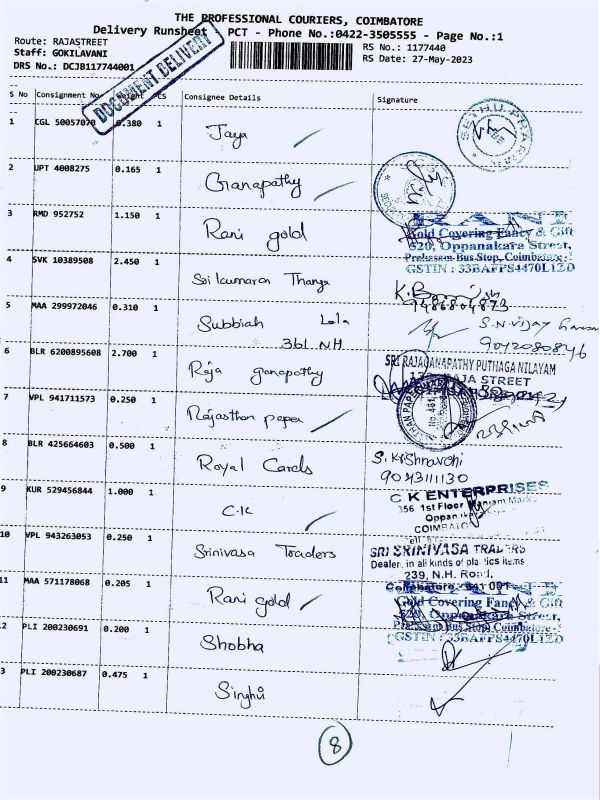 THE PROFESSIONAL COURIERS, COIMBATORE
Delivery Runsheet PCT - Phone No.:0422-3505555 - Page No.:1
Route: RAJASTREET
Staff: GOKILAVANI
DRS No.: DCJB117744001
RS No.: 1177440
RS Date: 27-May-2023
DOCUMENT DELIVERY
S No Consignment No PCS Consignee Details Signature
1 CGL 50057070 0.380 1 Jaya
2 UPT 4008275 0.165 1 Ganapathy
3 RMD 952752 1.150 1 Rani gold
RANI
Gold Covering Fancy & Gift
520, Oppanakara Street,
Prakasam Bus Stop, Coimbatore-
GSTIN : 33BAFPS4470L1ZD
4 SVK 10389508 2.450 1 Sri kumaran Thanga
5 MAA 299972046 0.310 1 Subbiah Lala
361 NH
S.N.Vijay
9042080846
6 BLR 6200895608 2.700 1 Raja ganapathy
SRI RAJAGANAPATHY PUTHAGA NILAYAM
RAJA STREET
7 VPL 941711573 0.250 1 Rajasthan paper
8 BLR 425664603 0.500 1 Royal Cards
9043111130
9 KUR 529456844 1.000 1 C.K
C K ENTERPRISES
356 1st Floor
10 VPL 943263053 0.250 1 Srinivasa Traders
SRI SRINIVASA TRADERS
Dealer in all kinds of plastics items
239, N.H. Road,
Coimbatore - 641 001
11 MAA 571178068 0.205 1 Rani gold
Gold Covering Fancy & Gift
520, Oppanakara Street,
Prakasam Bus Stop Coimbatore-
GSTIN : 33BAFPS4470L1ZD
2 PLI 200230691 0.200 1 Shobha
3 PLI 200230687 0.475 1 Singhvi
8